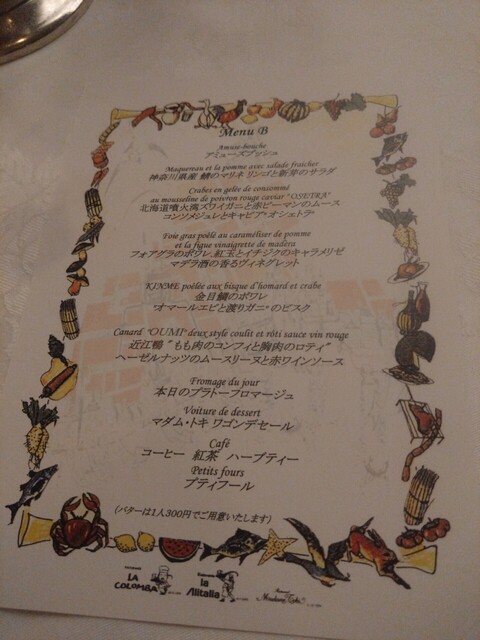 Menu B
Amuse-bouche
アミューズブッシュ
Maquereau et la pomme avec salade fraicher
神奈川県産 鯖のマリネ リンゴと新芽のサラダ
Crabes en gelée de consommé
au mousseline de poivron rouge caviar "OSETRA"
北海道噴火湾ズワイガニと赤ピーマンのムース
コンソメジュレとキャビア・オシェトラ
Foie gras poêlé au caraméliser de pomme
et la figue vinaigrette de madera
フォアグラのポワレ、紅玉とイチジクのキャラメリゼ
マデラ酒の香るヴィネグレット
KINME poêlée aux bisque d'homard et crabe
金目鯛のポワレ
オマールエビと渡りガニのビスク
Canard "OUMI" deux style coufit et rôti sauce vin rouge
近江鴨 "もも肉のコンフィと胸肉のロティ"
ヘーゼルナッツのムースリーヌと赤ワインソース
Fromage du jour
本日のプラトーフロマージュ
Voiture de dessert
マダム・トキ ワゴンデセール
Café
コーヒー 紅茶 ハーブティー
Petits fours
プティフール
(バターは1人300円でご用意いたします)
LA COLOMBA
la Alitalia
Madame Toki